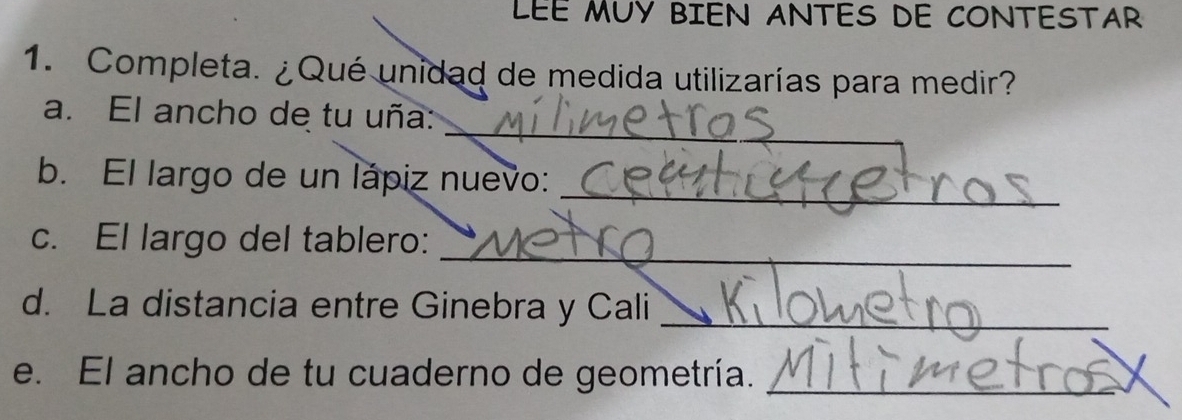 LEE MUY BIEN ANTES DE CONTESTAR
1. Completa. ¿Qué unidad de medida utilizarías para medir?
a. El ancho de tu uña: Milimetros
b. El largo de un lápiz nuevo: Centimetros
c. El largo del tablero: Metro
d. La distancia entre Ginebra y Cali Kilometro
e. El ancho de tu cuaderno de geometría. Milimetros